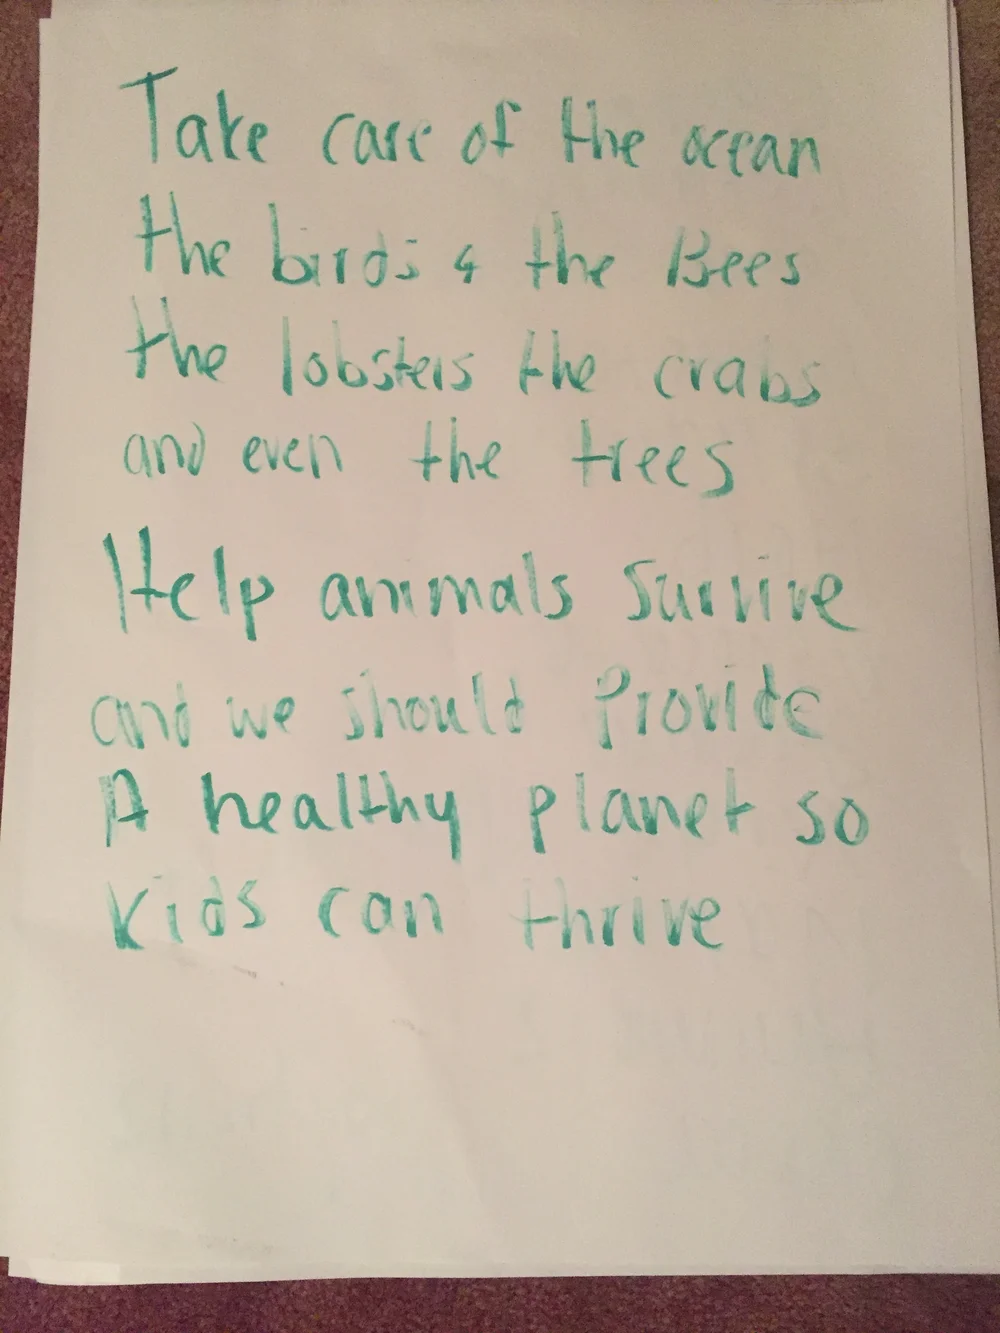 Take care of the ocean
the birds & the Bees
the lobsters the crabs
and even the trees
Help animals survive
and we should Provide
A healthy planet so
Kids can thrive